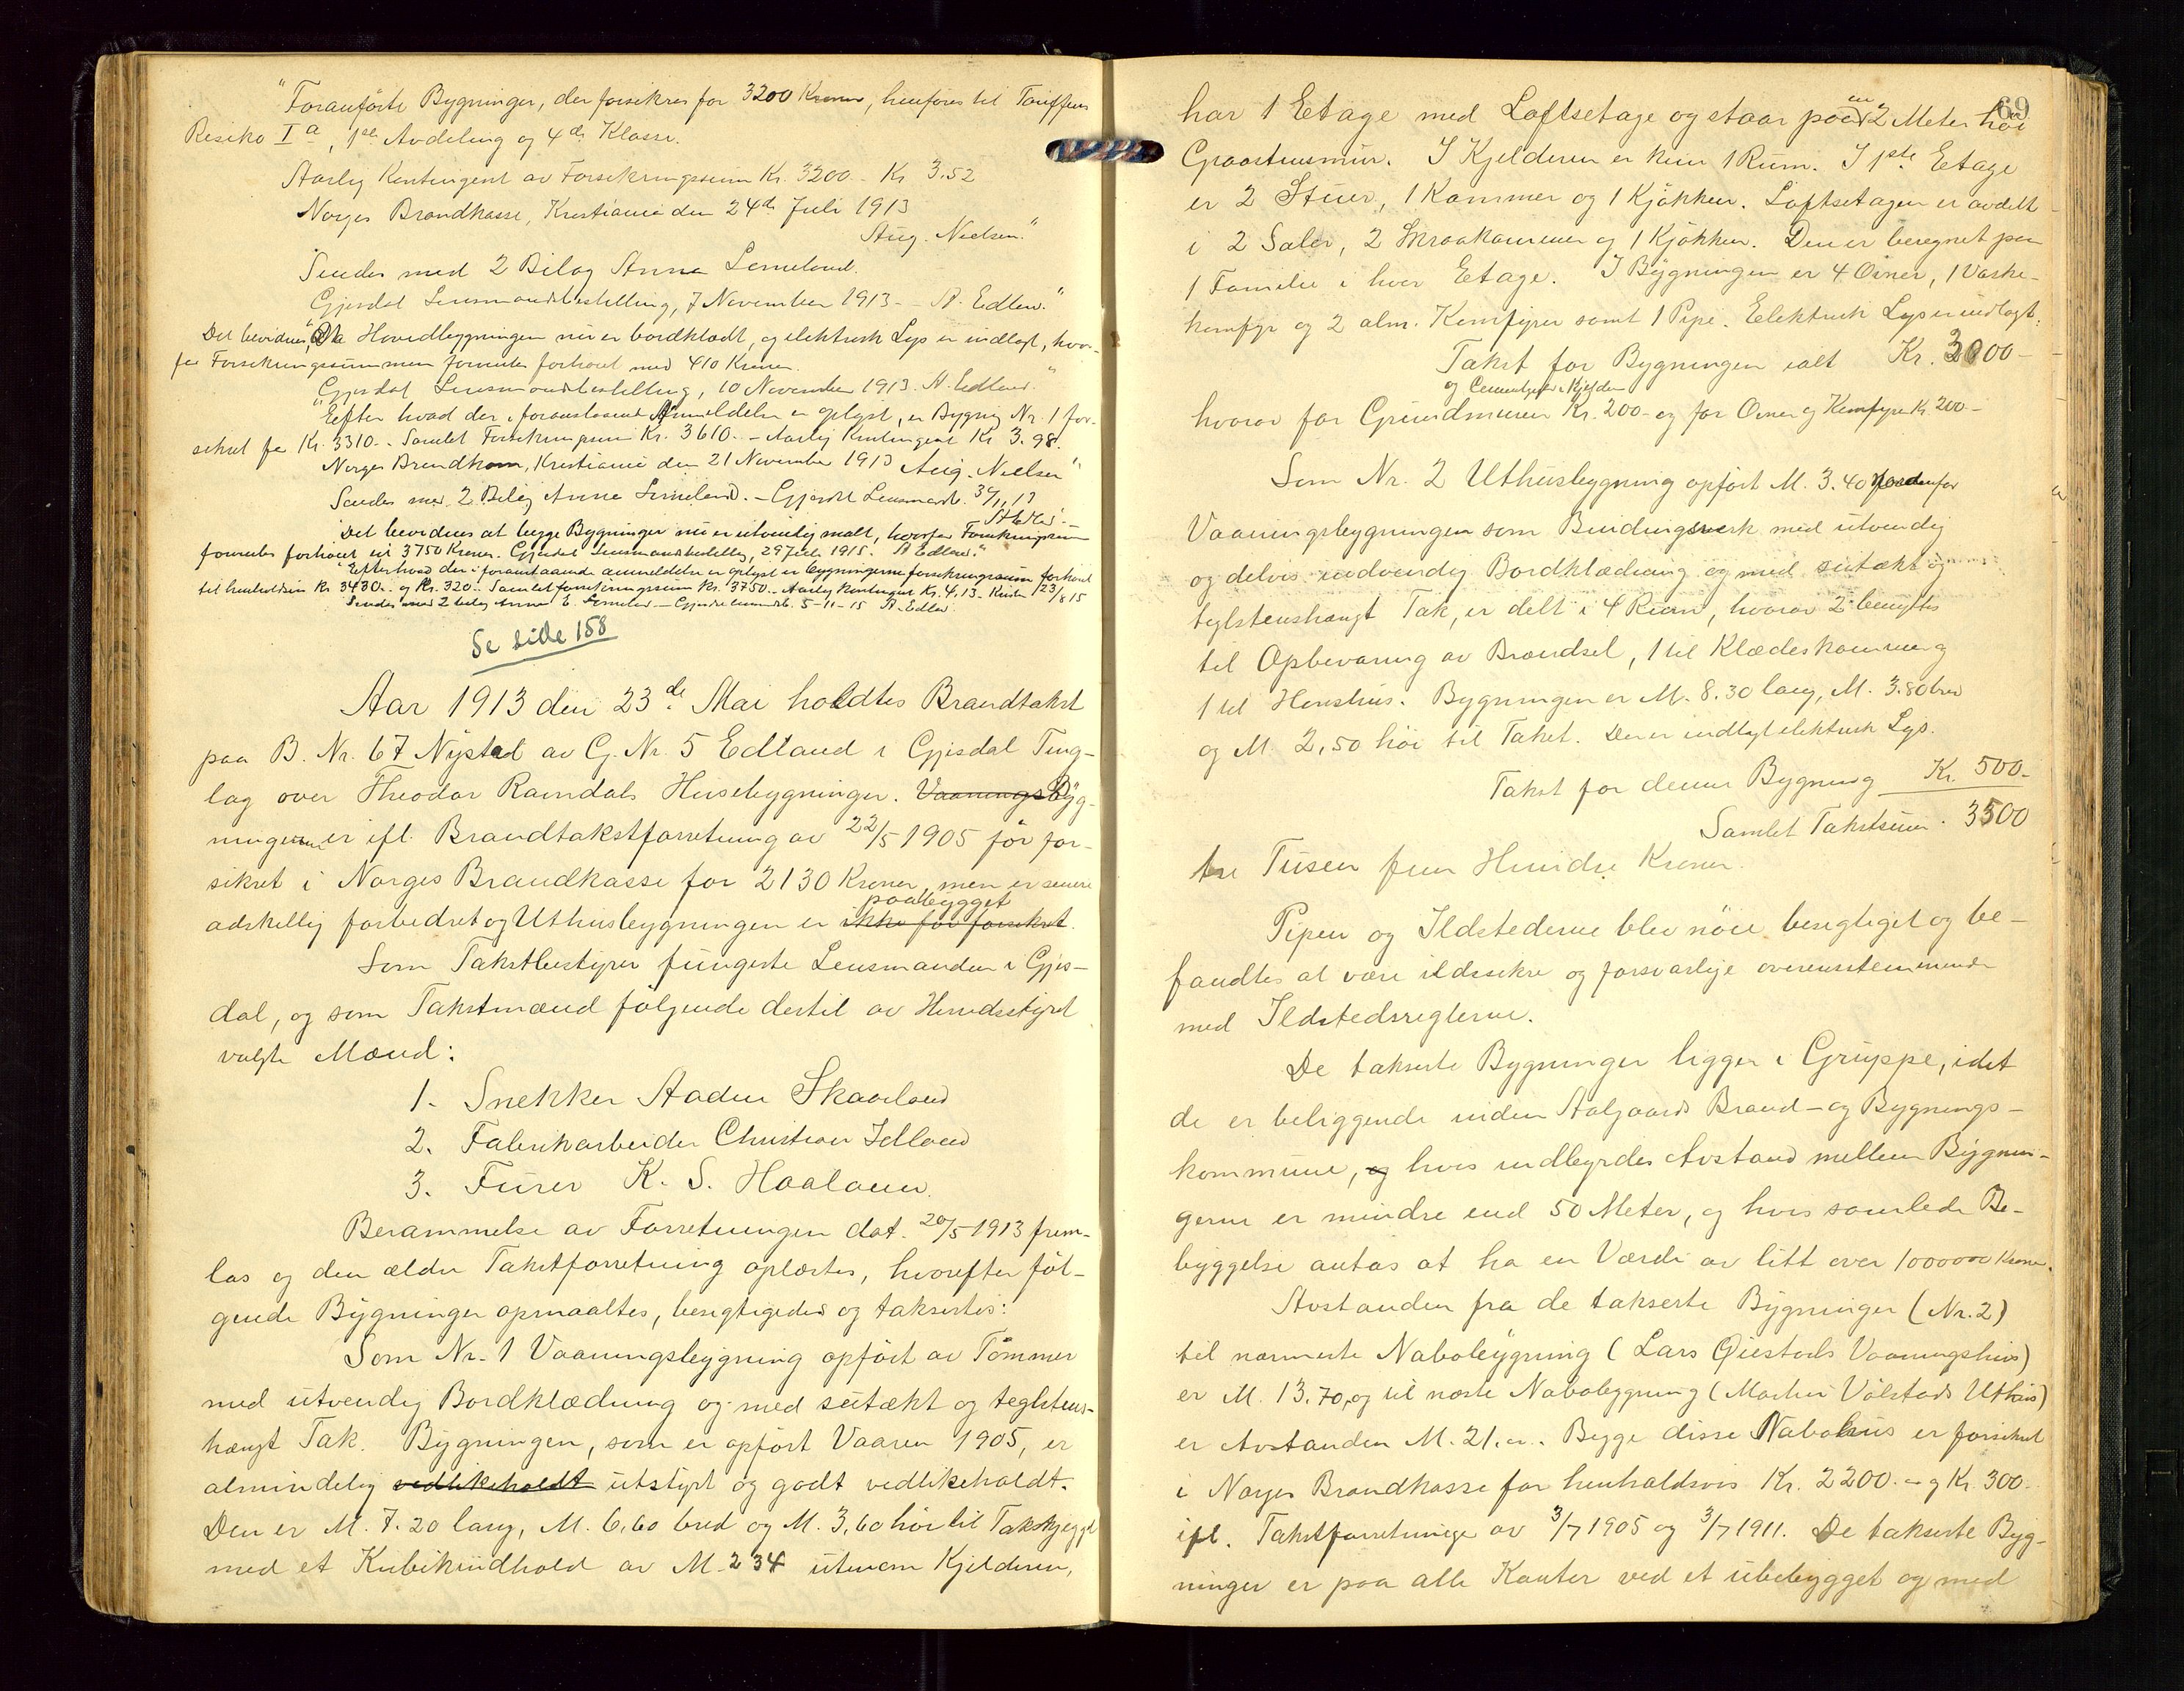 "Foranførte Bygninger, der forsikres for 3200 Kroner, henføres til Tariffens
Risiko I a, 1ste Avdeling og 4de Klasse.
Aarlig Kontingent av Forsikringssum Kr. 3200.- Kr 3.52
Norges Brandkasse, Kristiania den 24de Juli 1913
Aug. Nielsen."
Sendes med 2 Bilag Anna Limeland.
Gjesdal Lensmandsbestilling, 7 November 1913 - A. Edland."
Det bevidnes, at Hovedbygningen nu er bordklædt, og elektrisk Lys er indlagt, hvor-
for Forsikringssummen forventes forhøiet med 410 Kroner.
Gjesdal Lensmandsbestilling, 10 November 1913. A. Edland."
"Efter hvad der i foranstaaende Anmeldelse er oplyst, er Bygning Nr. 1 for-
sikret for Kr. 3310.- Samlet Forsikringssum Kr. 3610.- Aarlig Kontingent Kr 3.98.
Norges Brandkasse, Kristiania den 21 November 1913 Aug. Nielsen"
Sendes med 2 Bilag Anna Limeland. - Gjesdal Lensmandsb. 30/11 13
A. Edland.
Det bevidnes at begge Bygninger nu er utvendig malt, hvorfor Forsikringssum
forventes forhøiet til 3750 Kroner. Gjesdal Lensmandsbestilling, 29 Juli 1915. A Edland."
"Efter hvad der i foranstaaende anmeldelse er oplyst er bygningerne forsikringssum forhøiet
til henholdsvis Kr 3430.- og Kr. 320.- Samlet forsikringssum Kr. 3750.- Aarlig Kontingent Kr. 4,13.- Kristia 23/8 15
Sendes med 2 bilag Anna E. Limeland - Gjesdal lensmandsb. 5-11-15 A. Edland
Se side 158
Aar 1913 den 23de Mai holdtes Brandtakst
paa B. Nr. 67 Nystad av G. Nr. 5 Edland i Gjesdal Ting-
lag over Theodor Ramdals Husebygninger. Vaanings Byg-
ningerne er ifl. Brandtakstforretning av 22/5 1905 før for-
sikret i Norges Brandkasse for 2130 Kroner, men er senere
paabygget
adskillig forbedret og Uthusbygningen er ikke før forsikret.
Som Takstbestyrer fungerte Lensmanden i Gjes-
dal, og som Takstmænd følgende dertil av Herredsstyret
valgte Mænd:
1. Snekker Aaden Skaarland
2. Fabrikarbeider Christian Idland
3. Furer K. S. Haaland
Berammelse av Forretningen dat. 20/5 1913 frem-
las og den ældre Takstforretning oplæstes, hvorefter føl-
gende Bygninger opmaaltes, besigtigedes og takseres:
Som Nr. 1 Vaaningsbygning opført av Tømmer
med utvendig Bordklædning og med sutækt og teglstens-
hængt Tak. Bygningen, som er opført Vaaren 1905, er
almindelig vedlikeholdt utstyrt og godt vedlikeholdt.
Den er M. 7.20 lang, M. 6,60 bred og M. 3,60 høi til Takskjegget
med et Kubikindhold av M. 234 utenom Kjelderen,
69
har 1 Etage med Loftsetage og staar paa en 2 Meter høi
Graastensmur. I Kjelderen er kun 1 Rum. I 1ste Etage
er 2 Stuer, 1 Kammer og 1 Kjøkken. Loftsetagen er avdelt
i 2 Saler, 2 Skraakammer og 1 Kjøkken. Den er beregnet paa
1 Familie i hver Etage. I Bygningen er 4 Ovner, 1 Vaske-
komfyr og 2 alm. Komfyrer samt 1 Pipe. Elektrisk Lys er indlagt.
Takst for Bygningen ialt Kr. 3000-
og Cementgulv i Kjelder
hvorav for Grundmuren Kr. 200- og for Ovner og Komfyre Kr. 200-
Som Nr. 2 Uthusbygning opført M. 3.40 nordenfor
Vaaningsbygningen som Bindingsverk med utvendig
og delvis indvendig Bordklædning og med sutækt og
teglstenshængt Tak, er delt i 4 Rum, hvorav 2 benyttes
til Opbevaring av Brændsel, 1 til Klædeskammer og
1 til Hønshus. Bygningen er M. 8.30 lang, M. 3.80 bred
og M. 2,50 høi til Taket. Der er indlagt elektrisk Lys.
Takst for denne Bygning Kr. 500-
Samlet Takstsum . 3500
tre Tusen fem Hundre Kroner.
Pipen og Ildstederne blev nøie besigtiget og be-
fandtes at være ildssikre og forsvarlige overensstemmende
med Ildstedsreglerne.
De takserte Bygninger ligger i Gruppe, idet
de er beliggende inden Aalgaards Brand- og Bygnings-
kommune, og hvis indbyrdes Avstand mellem Bygnin-
gerne er mindre end 50 Meter, og hvis samlede Be-
byggelse antas at ha en Værdi av litt over 1000000 Kroner.
Avstanden fra de takserte Bygninger (Nr. 2)
til nærmeste Nabobygning (Lars Qvestads Vaaningshus)
er M. 13.70, og til næste Nabobygning (Martin Vølstads Uthus)
er Avstanden M. 21. Begge disse Nabohus er forsikret
i Norges Brandkasse for henholdsvis Kr. 2200.- og Kr. 300.
ifl. Takstforretninger av 3/7 1905 og 3/7 1911. De takserte Byg-
ninger er paa alle Kanter ved et ubebygget og med